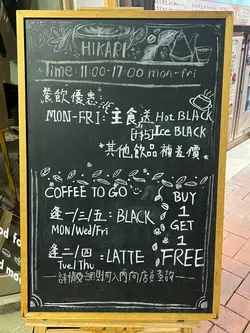 HIKARI
Time: 11:00-17:00 mon-fri
餐飲優惠:
MON-FRI: 主食送 Hot BLACK
Ice BLACK
*其他飲品補差價*
COFFEE TO GO
逢一/三/五: BLACK
MON/Wed/Fri
逢二/四: LATTE
Tue/Thu
BUY
1
GET
1
FREE
詳情及細則可入內向店員查詢